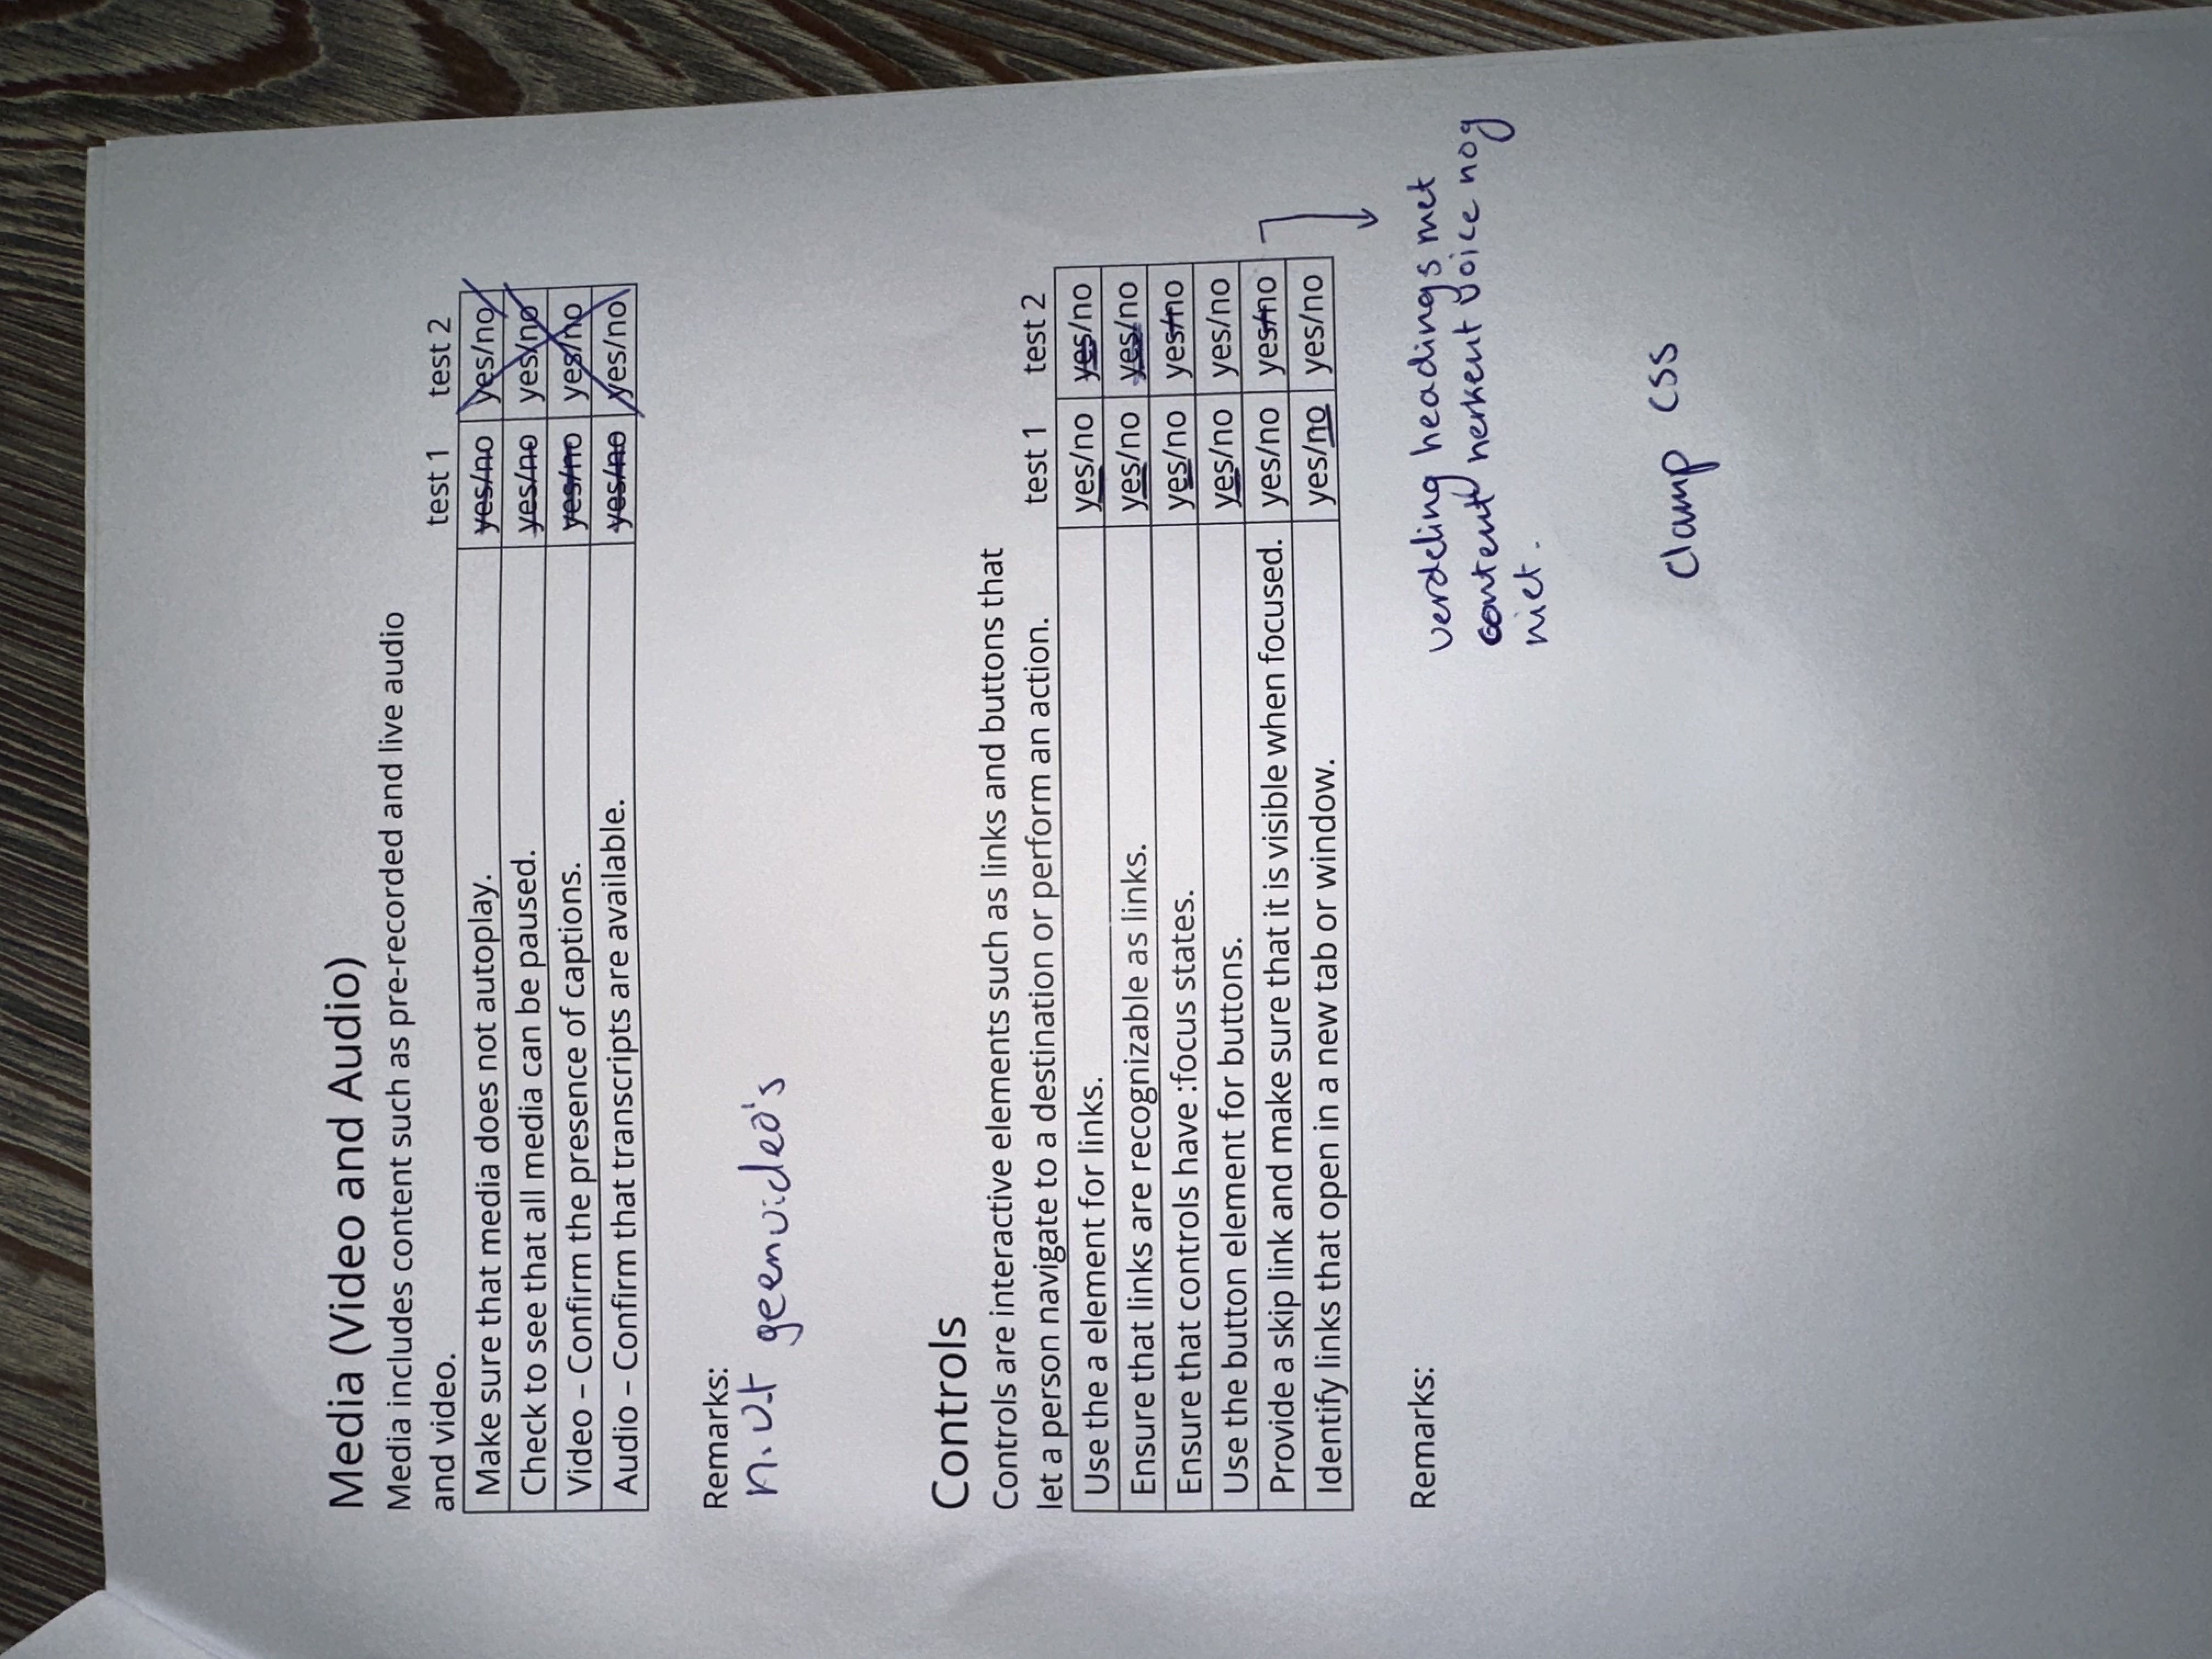 Media (Video and Audio)
Media includes content such as pre-recorded and live audio
and video. test 1 test 2
Make sure that media does not autoplay. yes/no yes/no
Check to see that all media can be paused. yes/no yes/no
Video – Confirm the presence of captions. yes/no yes/no
Audio – Confirm that transcripts are available. yes/no yes/no
Remarks:
n.v.t geen video's
Controls
Controls are interactive elements such as links and buttons that
let a person navigate to a destination or perform an action. test 1 test 2
Use the a element for links. yes/no yes/no
Ensure that links are recognizable as links. yes/no yes/no
Ensure that controls have :focus states. yes/no yes/no
Use the button element for buttons. yes/no yes/no
Provide a skip link and make sure that it is visible when focused. yes/no yes/no
Identify links that open in a new tab or window. yes/no yes/no
Remarks:
verdeling headings met
content herkent voice nog
niet.
clamp css